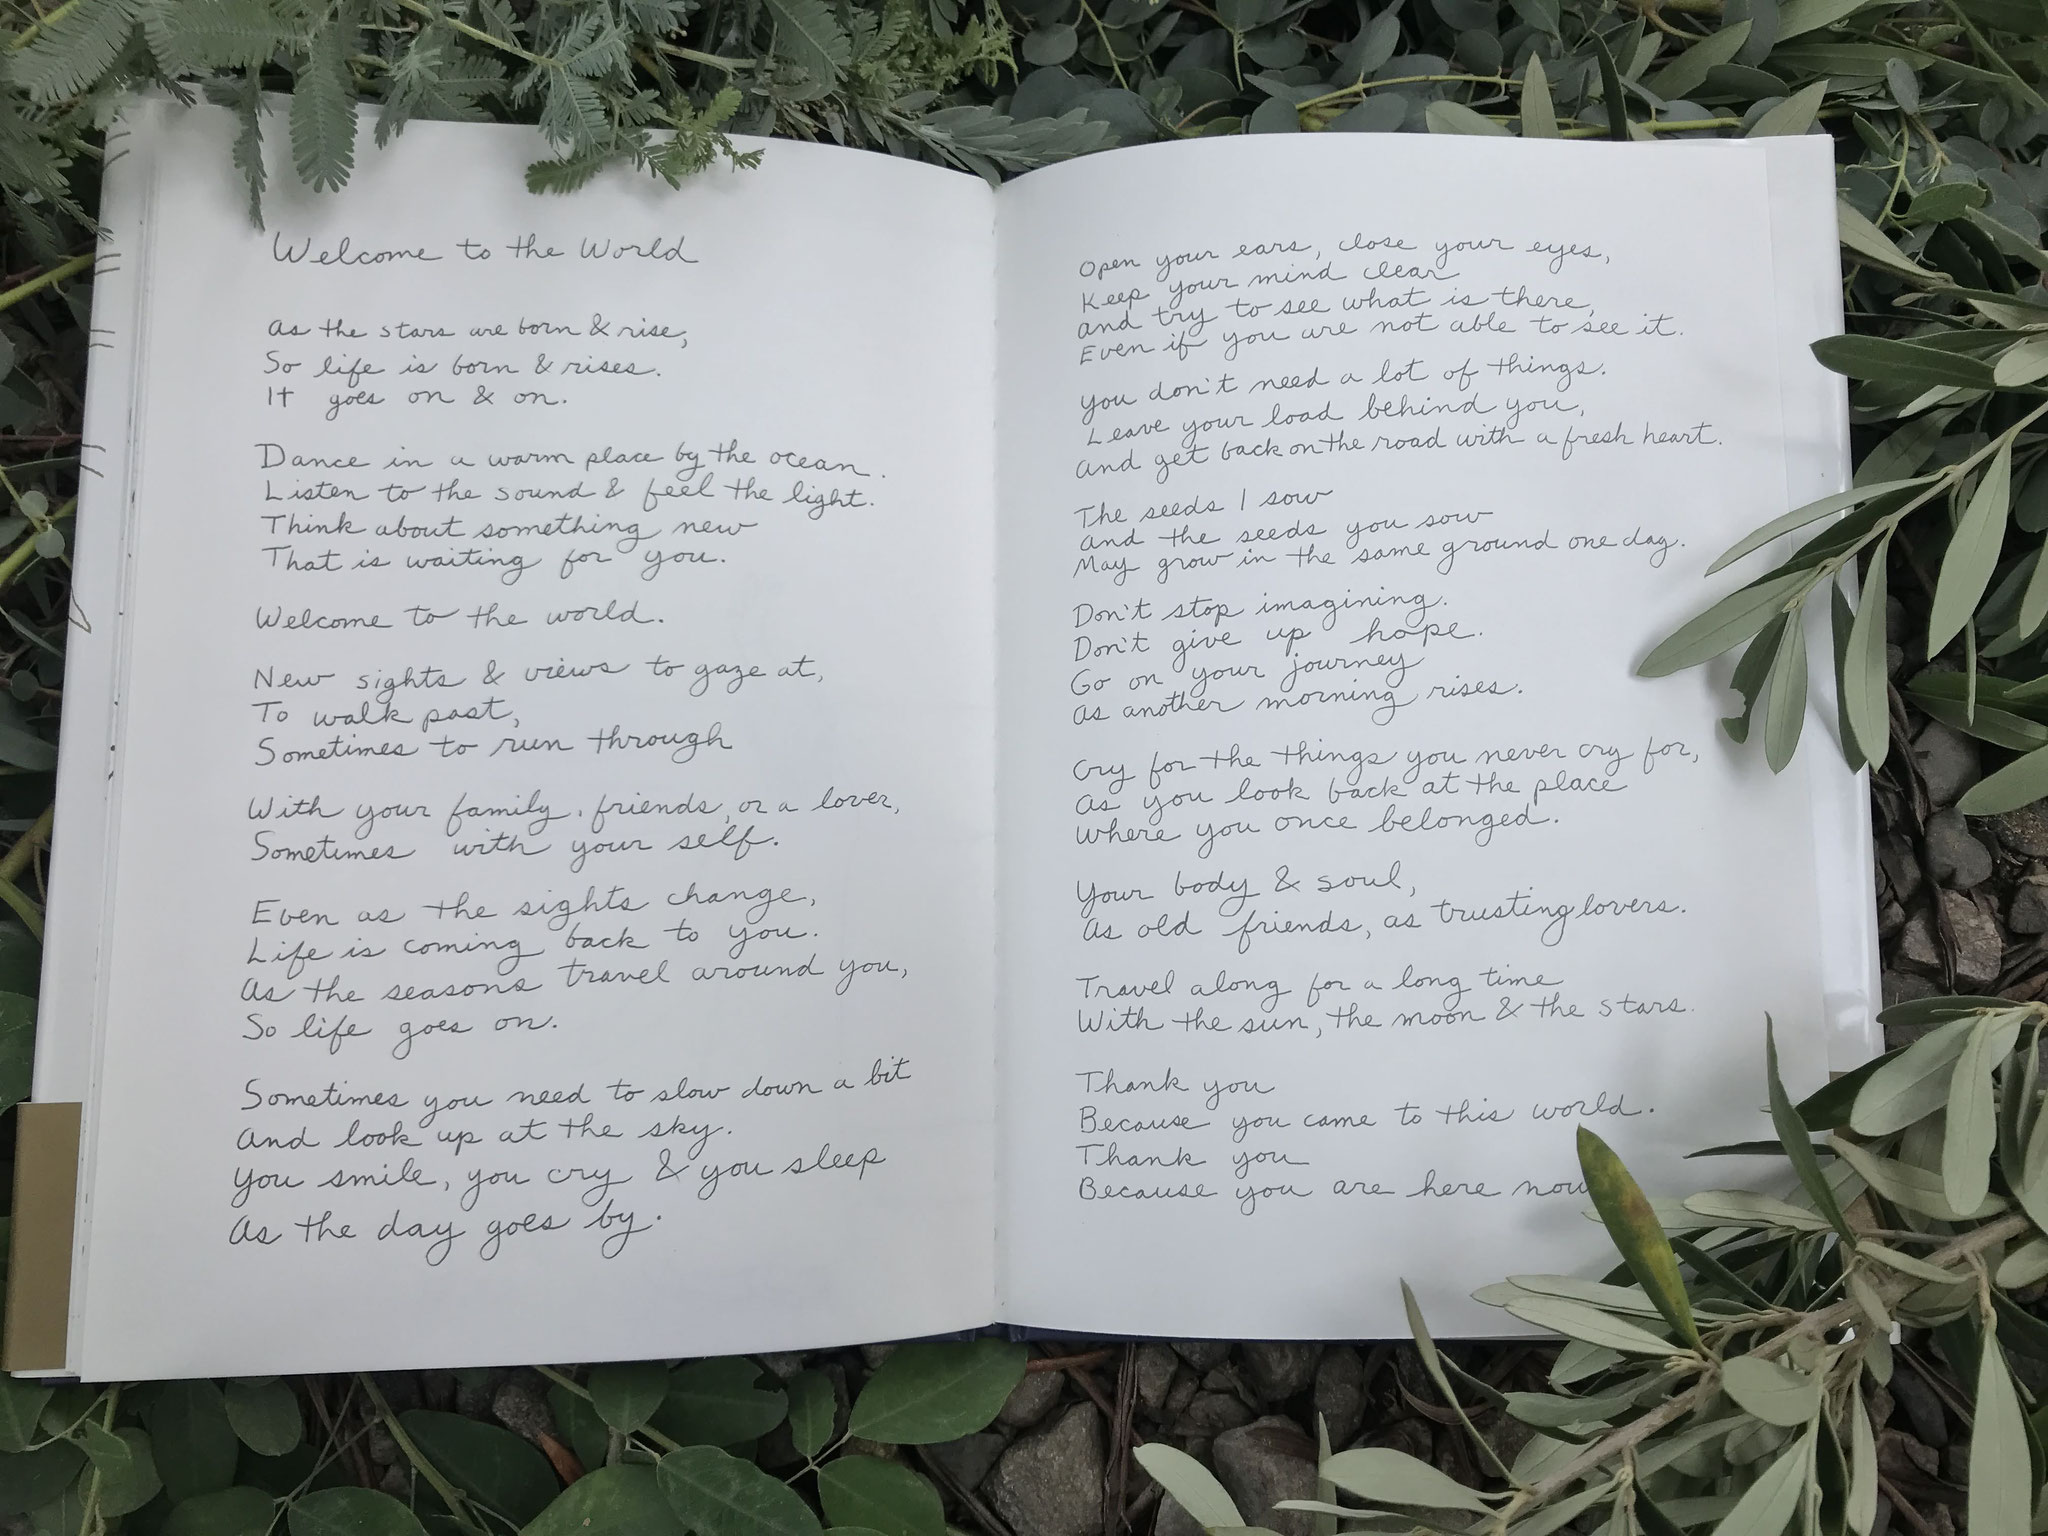 Welcome to the World
As the stars are born & rise,
So life is born & rises.
It goes on & on.
Dance in a warm place by the ocean.
Listen to the sound & feel the light.
Think about something new
That is waiting for you.
Welcome to the world.
New sights & views to gaze at,
To walk past,
Sometimes to run through
With your family, friends, or a lover,
Sometimes with your self.
Even as the sights change,
Life is coming back to you.
As the seasons travel around you,
So life goes on.
Sometimes you need to slow down a bit
And look up at the sky.
You smile, you cry & you sleep
As the day goes by.
Open your ears, close your eyes,
Keep your mind clear
And try to see what is there,
Even if you are not able to see it.
You don't need a lot of things.
Leave your load behind you,
And get back on the road with a fresh heart.
The seeds I sow
And the seeds you sow
May grow in the same ground one day.
Don't stop imagining.
Don't give up hope.
Go on your journey
As another morning rises.
Cry for the things you never cry for,
As you look back at the place
Where you once belonged.
Your body & soul,
As old friends, as trusting lovers.
Travel along for a long time
With the sun, the moon & the stars.
Thank you
Because you came to this world.
Thank you
Because you are here now